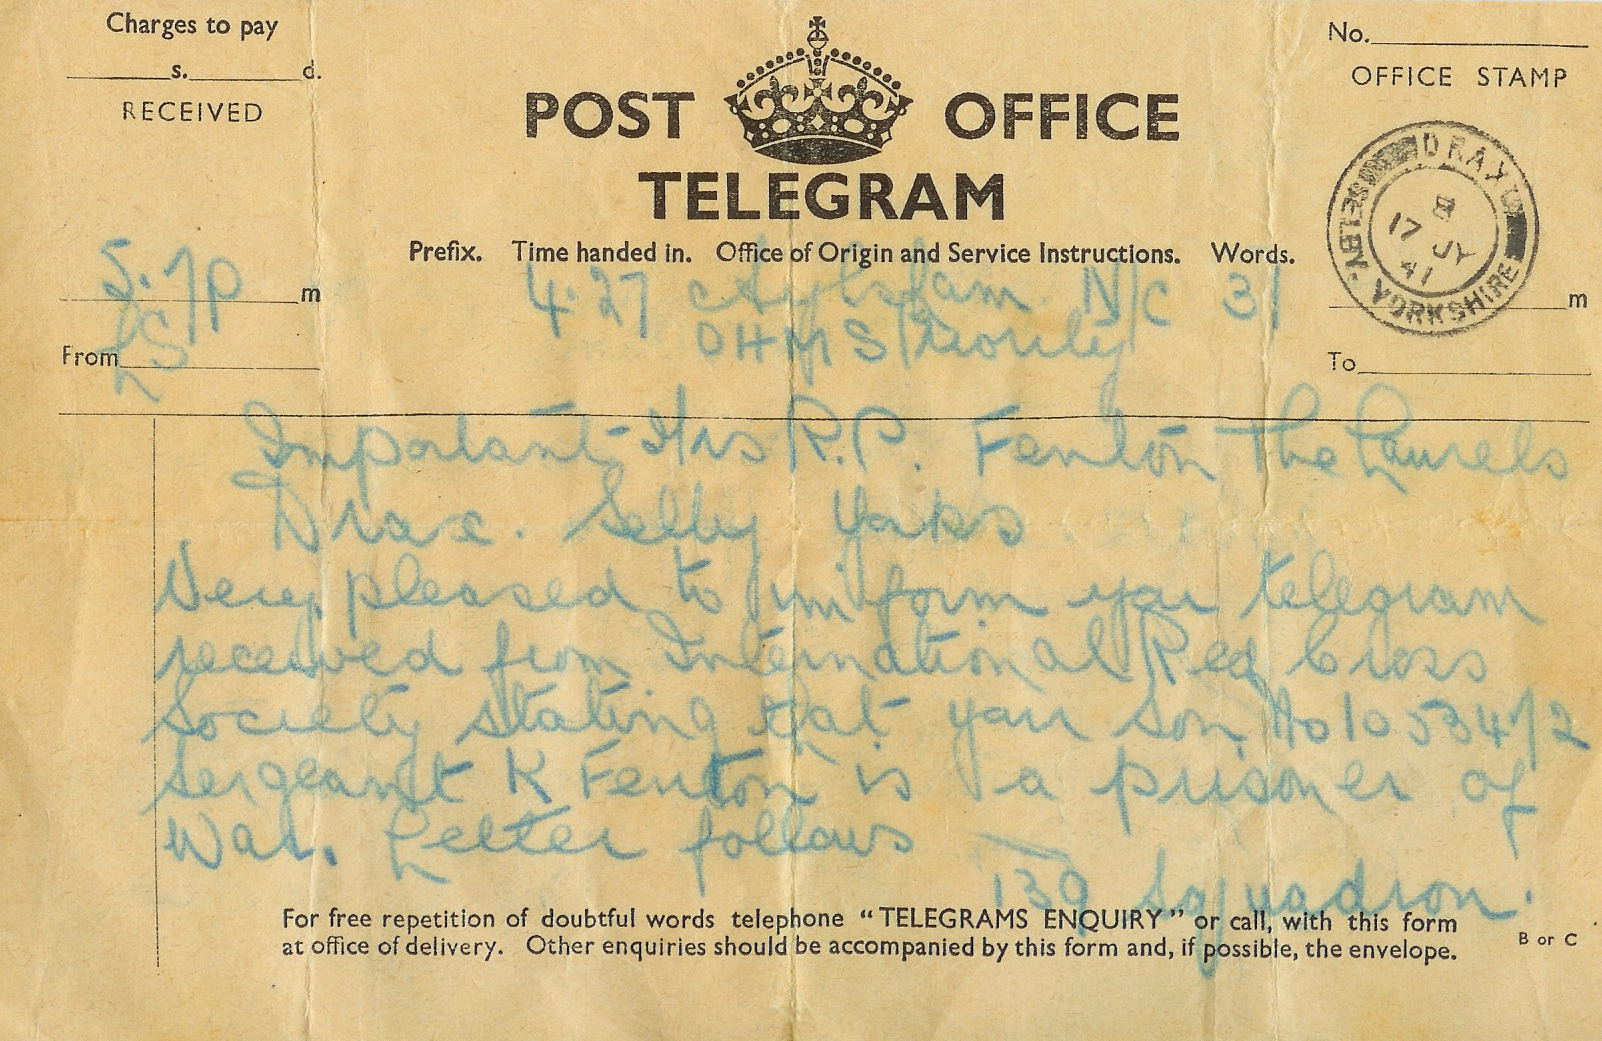 Charges to pay
s. d.
RECEIVED
POST OFFICE
TELEGRAM
No.
OFFICE STAMP
DRAX
8
17 JY
41
SELBY. YORKSHIRE
Prefix. Time handed in. Office of Origin and Service Instructions. Words.
5.7p m
4.27 Aylsham N/C 31
OHMS Priority
m
From LS
To
Important - Mrs R.P. Fenton The Laurels
Drax. Selby Yorks
Very pleased to inform you telegram
received from International Red Cross
Society stating that your son No 10534/2
Sergeant K Fenton is a prisoner of
War. Letter follows —
139 Squadron.
For free repetition of doubtful words telephone “TELEGRAMS ENQUIRY” or call, with this form
at office of delivery. Other enquiries should be accompanied by this form and, if possible, the envelope.
B or C